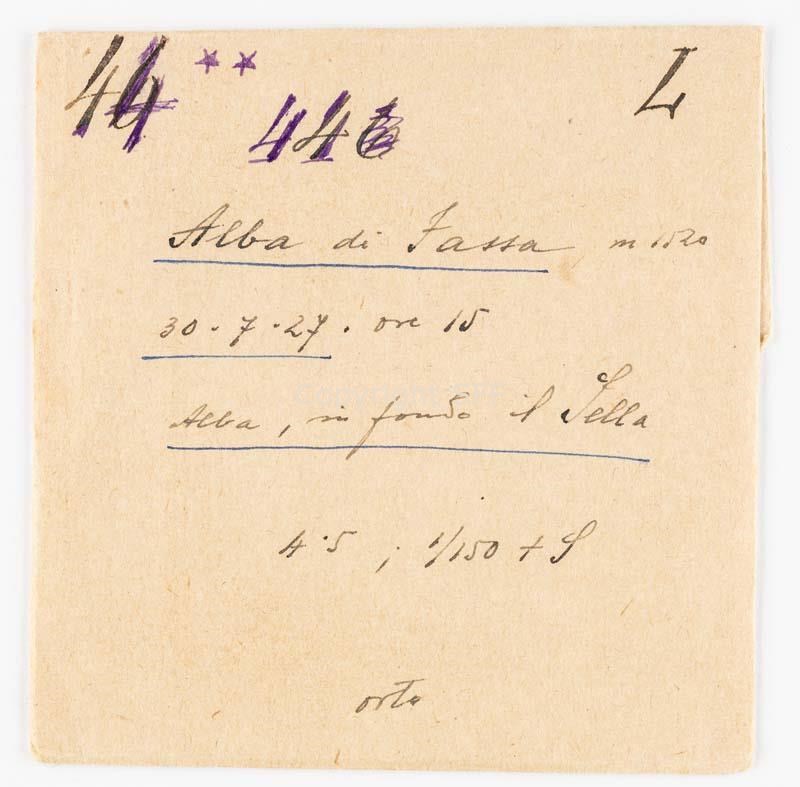 44 ** L
44
Alba di Fassa m 1520
30.7.27. ore 15
Alba, in fondo il Sella
4.5 ; 1/150 + S
orto